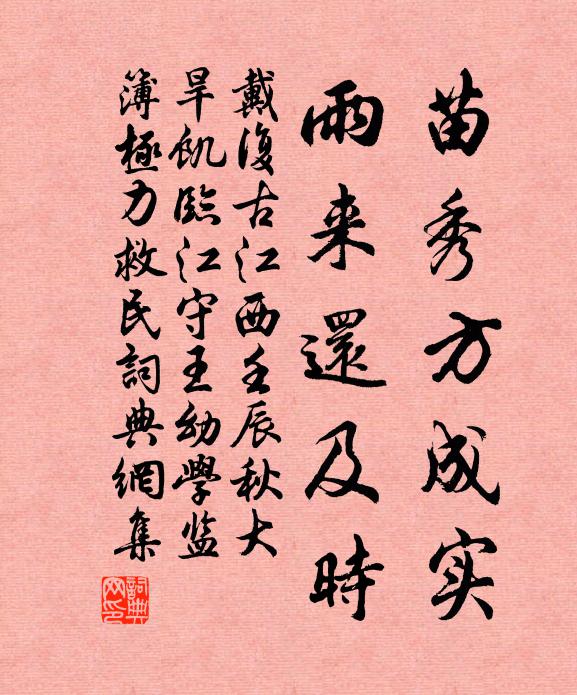 苗秀方成实
雨来還及時
戴復古江西壬辰秋大
旱飢臨江守王幼學监
簿極力救民詞典網集
詞典
网印